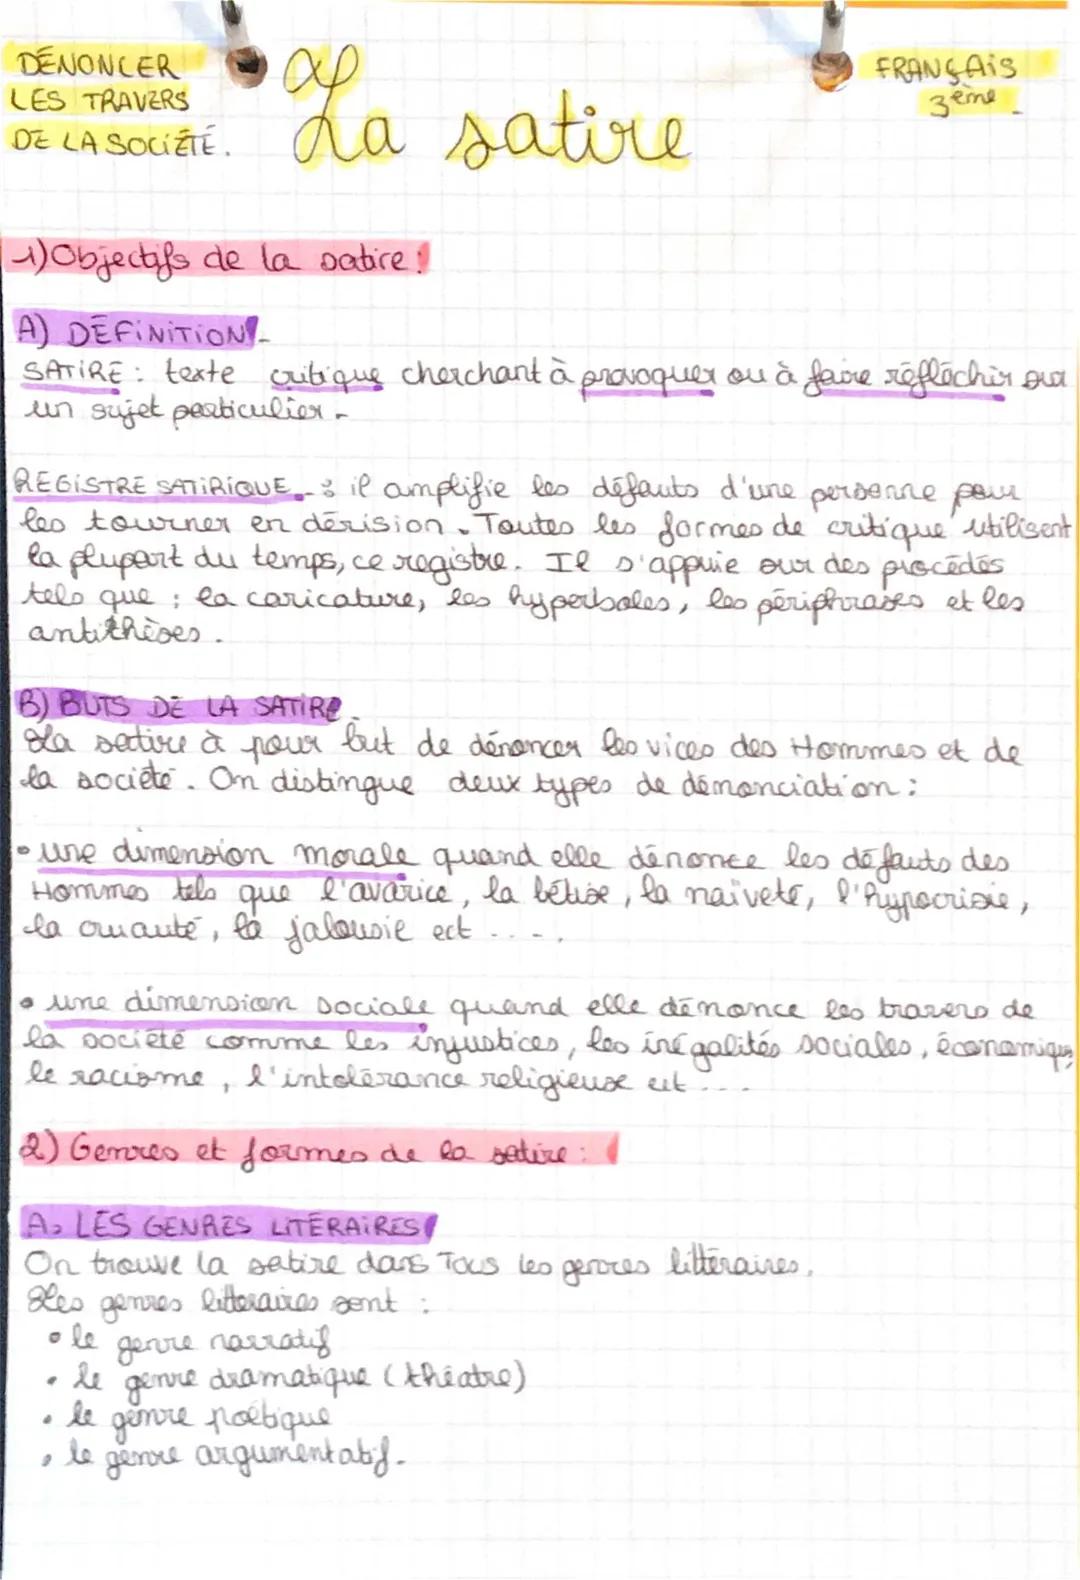 DÉNONCER
LES TRAVERS
DE LA SOCIÉTÉ.
La satire
FRANÇAIS
3ème
1) Objectifs de la satire :
A) DÉFINITION
SATIRE : texte critique cherchant à provoquer ou à faire réfléchir sur
un sujet particulier.
REGISTRE SATIRIQUE : il amplifie les défauts d'une personne pour
les tourner en dérision. Toutes les formes de critique utilisent
la plupart du temps, ce registre. Il s'appuie sur des procédés
tels que : la caricature, les hyperboles, les périphrases et les
antithèses.
B) BUTS DE LA SATIRE
La satire à pour but de dénoncer les vices des Hommes et de
la société. On distingue deux types de dénonciation :
• une dimension morale quand elle dénonce les défauts des
Hommes tels que l'avarice, la bêtise, la naïveté, l'hypocrisie,
la cruauté, la jalousie ect ....
• une dimension sociale quand elle dénonce les travers de
la société comme les injustices, les inégalités sociales, économiques,
le racisme, l'intolérance religieuse ect ....
2) Genres et formes de la satire :
A. LES GENRES LITÉRAIRES
On trouve la satire dans Tous les genres littéraires.
Les genres litteraires sont :
• le genre narratif
• le genre dramatique (théatre)
• le genre poétique
• le genre argumentatif.